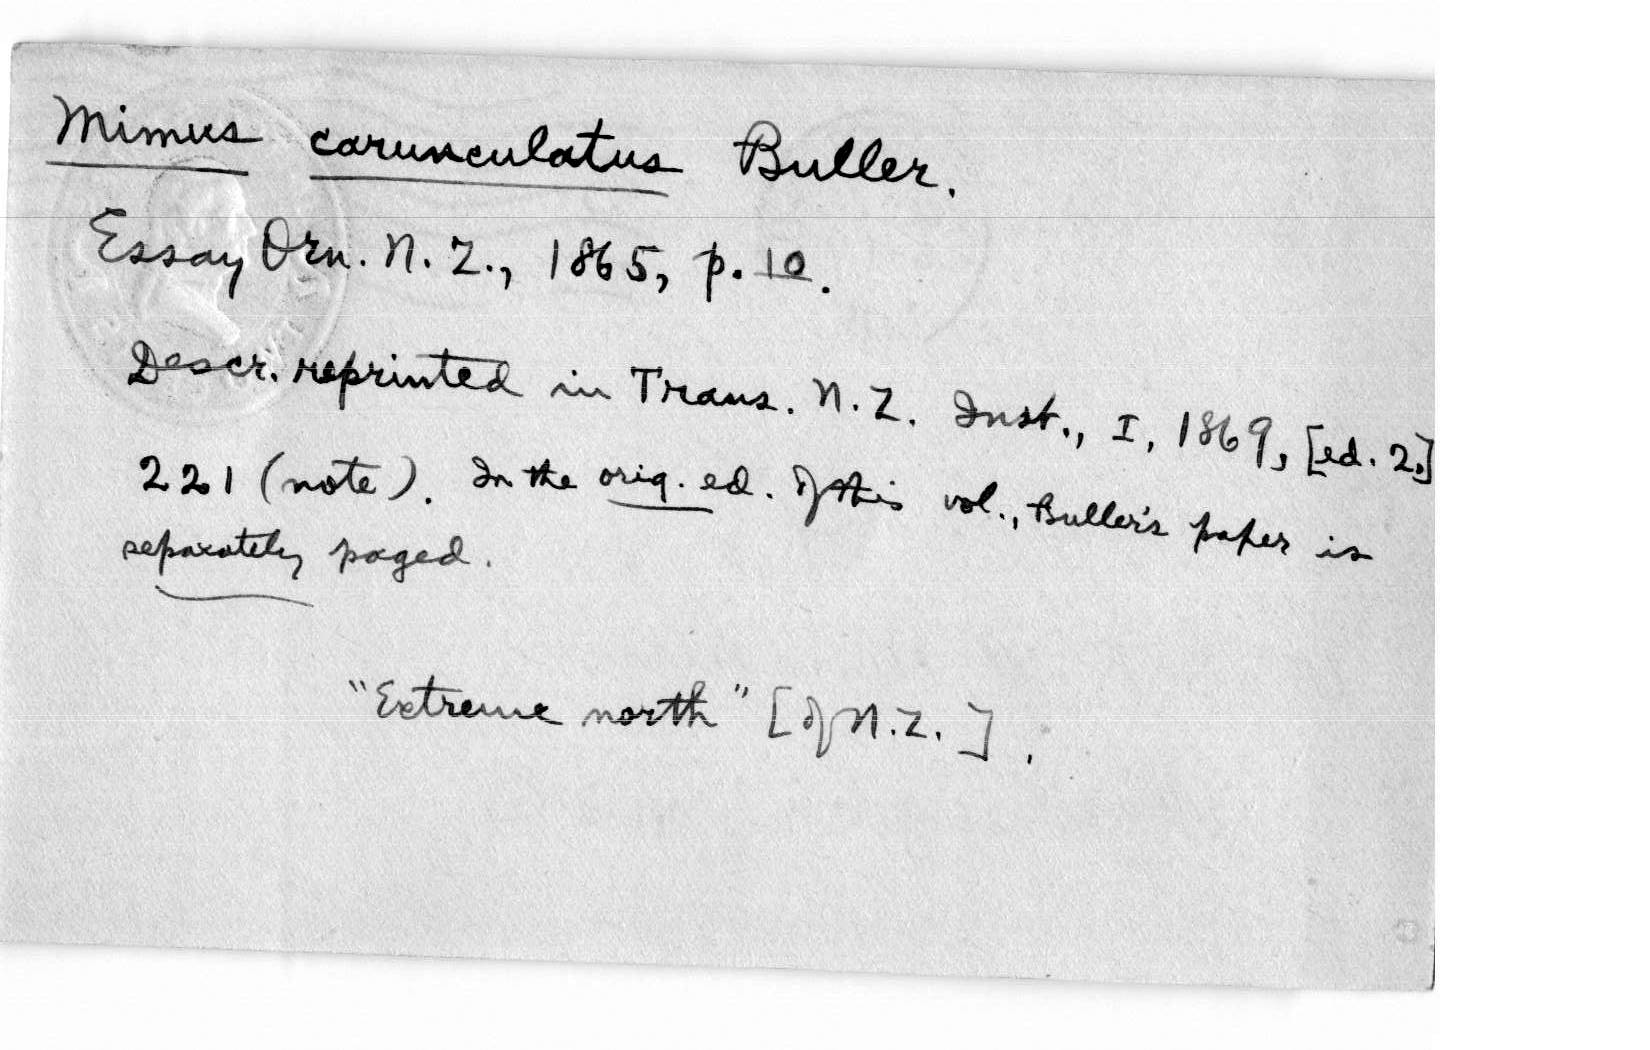 Mimus carunculatus Buller.
Essay Orn. N. Z., 1865, p. 10.
Descr. reprinted in Trans. N. Z. Inst., I, 1869, [ed. 2.]
221 (note). In the orig. ed. of this vol., Buller's paper is
separately paged.
"Extreme north" [of N.Z.].